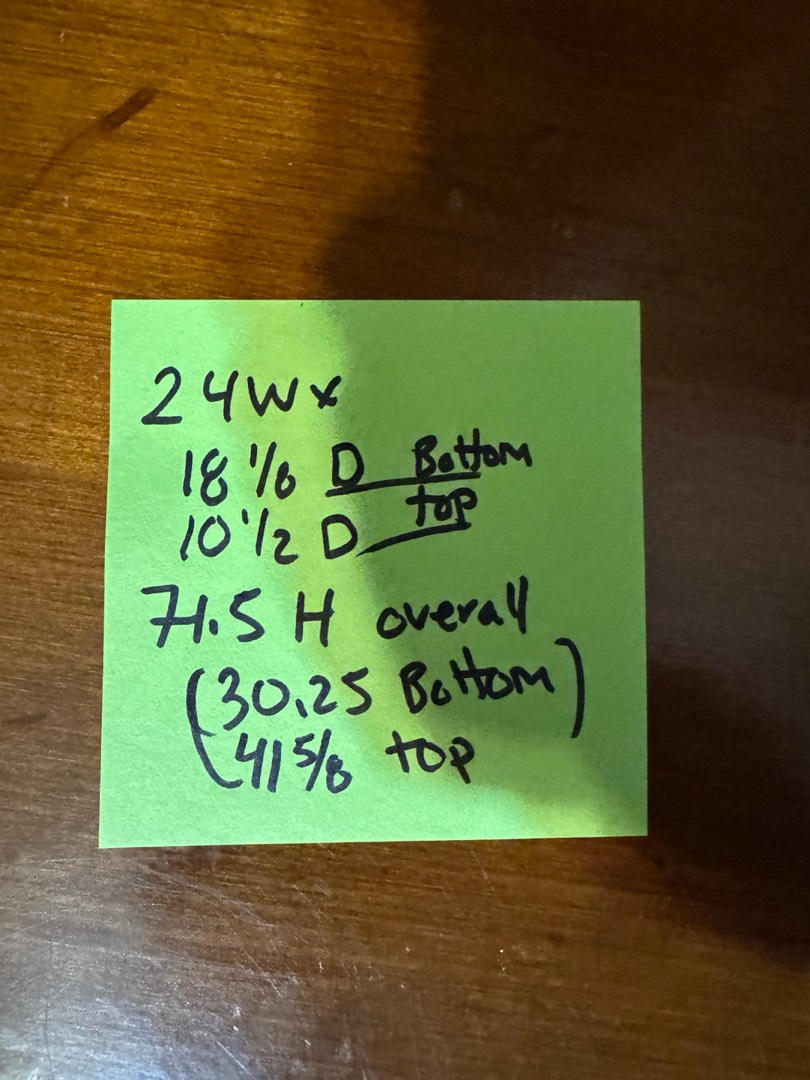 24W x
18 1/8 D Bottom
10 1/2 D top
71.5 H overall
(30.25 Bottom)
(41 5/8 top